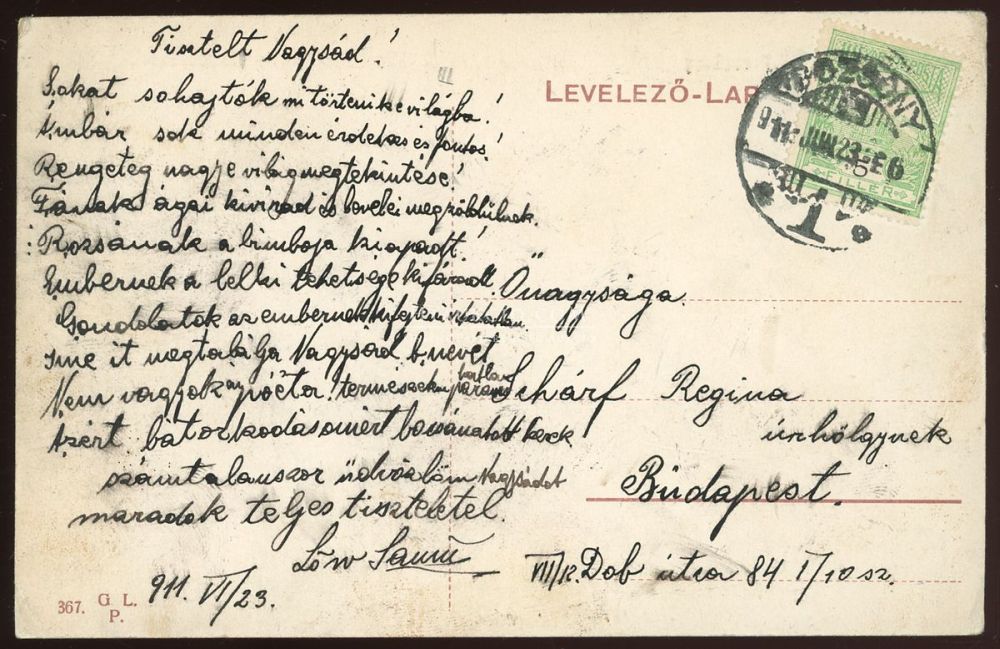 Tisztelt Nagysád!
Sokat sohajtók mi történik e világba!
Ámbár sok minden érdekes és fontos!
Rengeteg nagy e világ megtekintése!
Fának ágai kivirad és levelei megzöldülnek.
Rozsának a bimboja kiapadt!
Embernek a lelki tehetsége kifáradt.
Gondolatok az embernek kifejteni
Ime it megtalálja Nagysád b. nevét
Nem vagyok én póéta!
Azért bátorkodásomért bocsánatott kérek
számtalanszor üdvözlöm Nagysádot
maradok teljes tisztelettel
Löw Samu
911. VI/23.
367. G. L.
P.
LEVELEZŐ-LAP
POZSONY
911 JUN 23 E 6
FILLER
Önagysága
Schárf Regina
úrhölgynek
Budapest.
VII/k. Dob útca 84 I/10 sz.